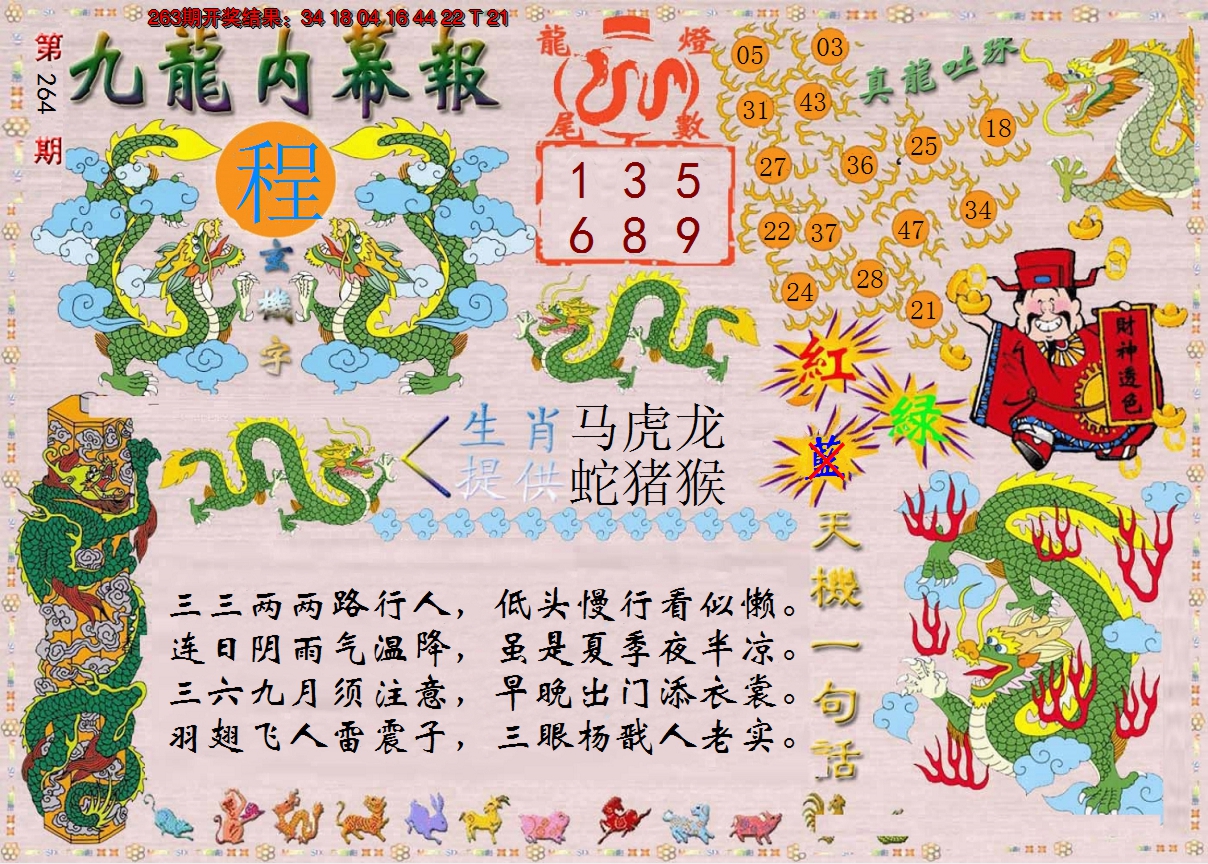 263期开奖结果：34 18 04 16 44 22 T 21
第264期
九龍内幕報
程
玄機字
龍燈
尾數
1 3 5
6 8 9
真龍吐珠
05 03
31 43
27 36 25 18
22 37 47 34
24 28 21
財神透色
紅
綠
藍
生肖 马虎龙
提供 蛇猪猴
天機一句話
三三两两路行人，低头慢行看似懒。
连日阴雨气温降，虽是夏季夜半凉。
三六九月须注意，早晚出门添衣裳。
羽翅飞人雷震子，三眼杨戬人老实。